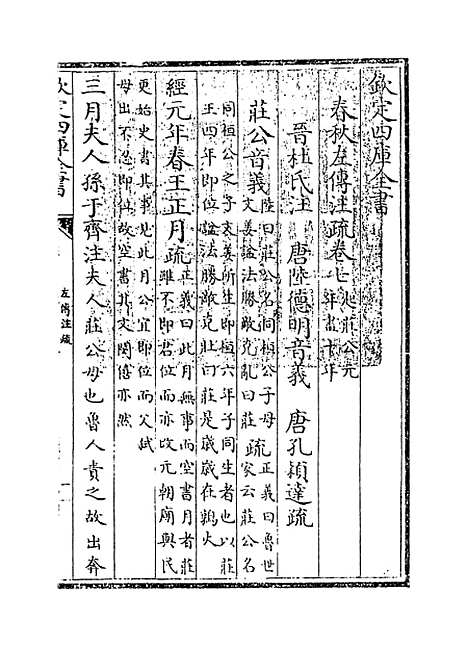 欽定四庫全書
春秋左傳注疏卷七起莊公元年盡十年
晉杜氏注　唐陸德明音義　唐孔穎達疏
莊公音義陸曰莊公名同桓公子母文姜諡法勝敵克亂曰莊疏正義曰魯世家云莊公名
同桓公之子文姜所生即桓六年子同生者也以莊王四年即位諡法勝敵克壯曰莊是歲歲在鶉火
經元年春王正月疏正義曰此月無事而空書月者莊雖不即君位而亦改元朝廟與民
更始史書其事見此月公宜即位而父弑母出不忍即位故空書其文閔僖亦然
三月夫人孫于齊注夫人莊公母也魯人責之故出奔
欽定四庫全書
左傳注疏
一